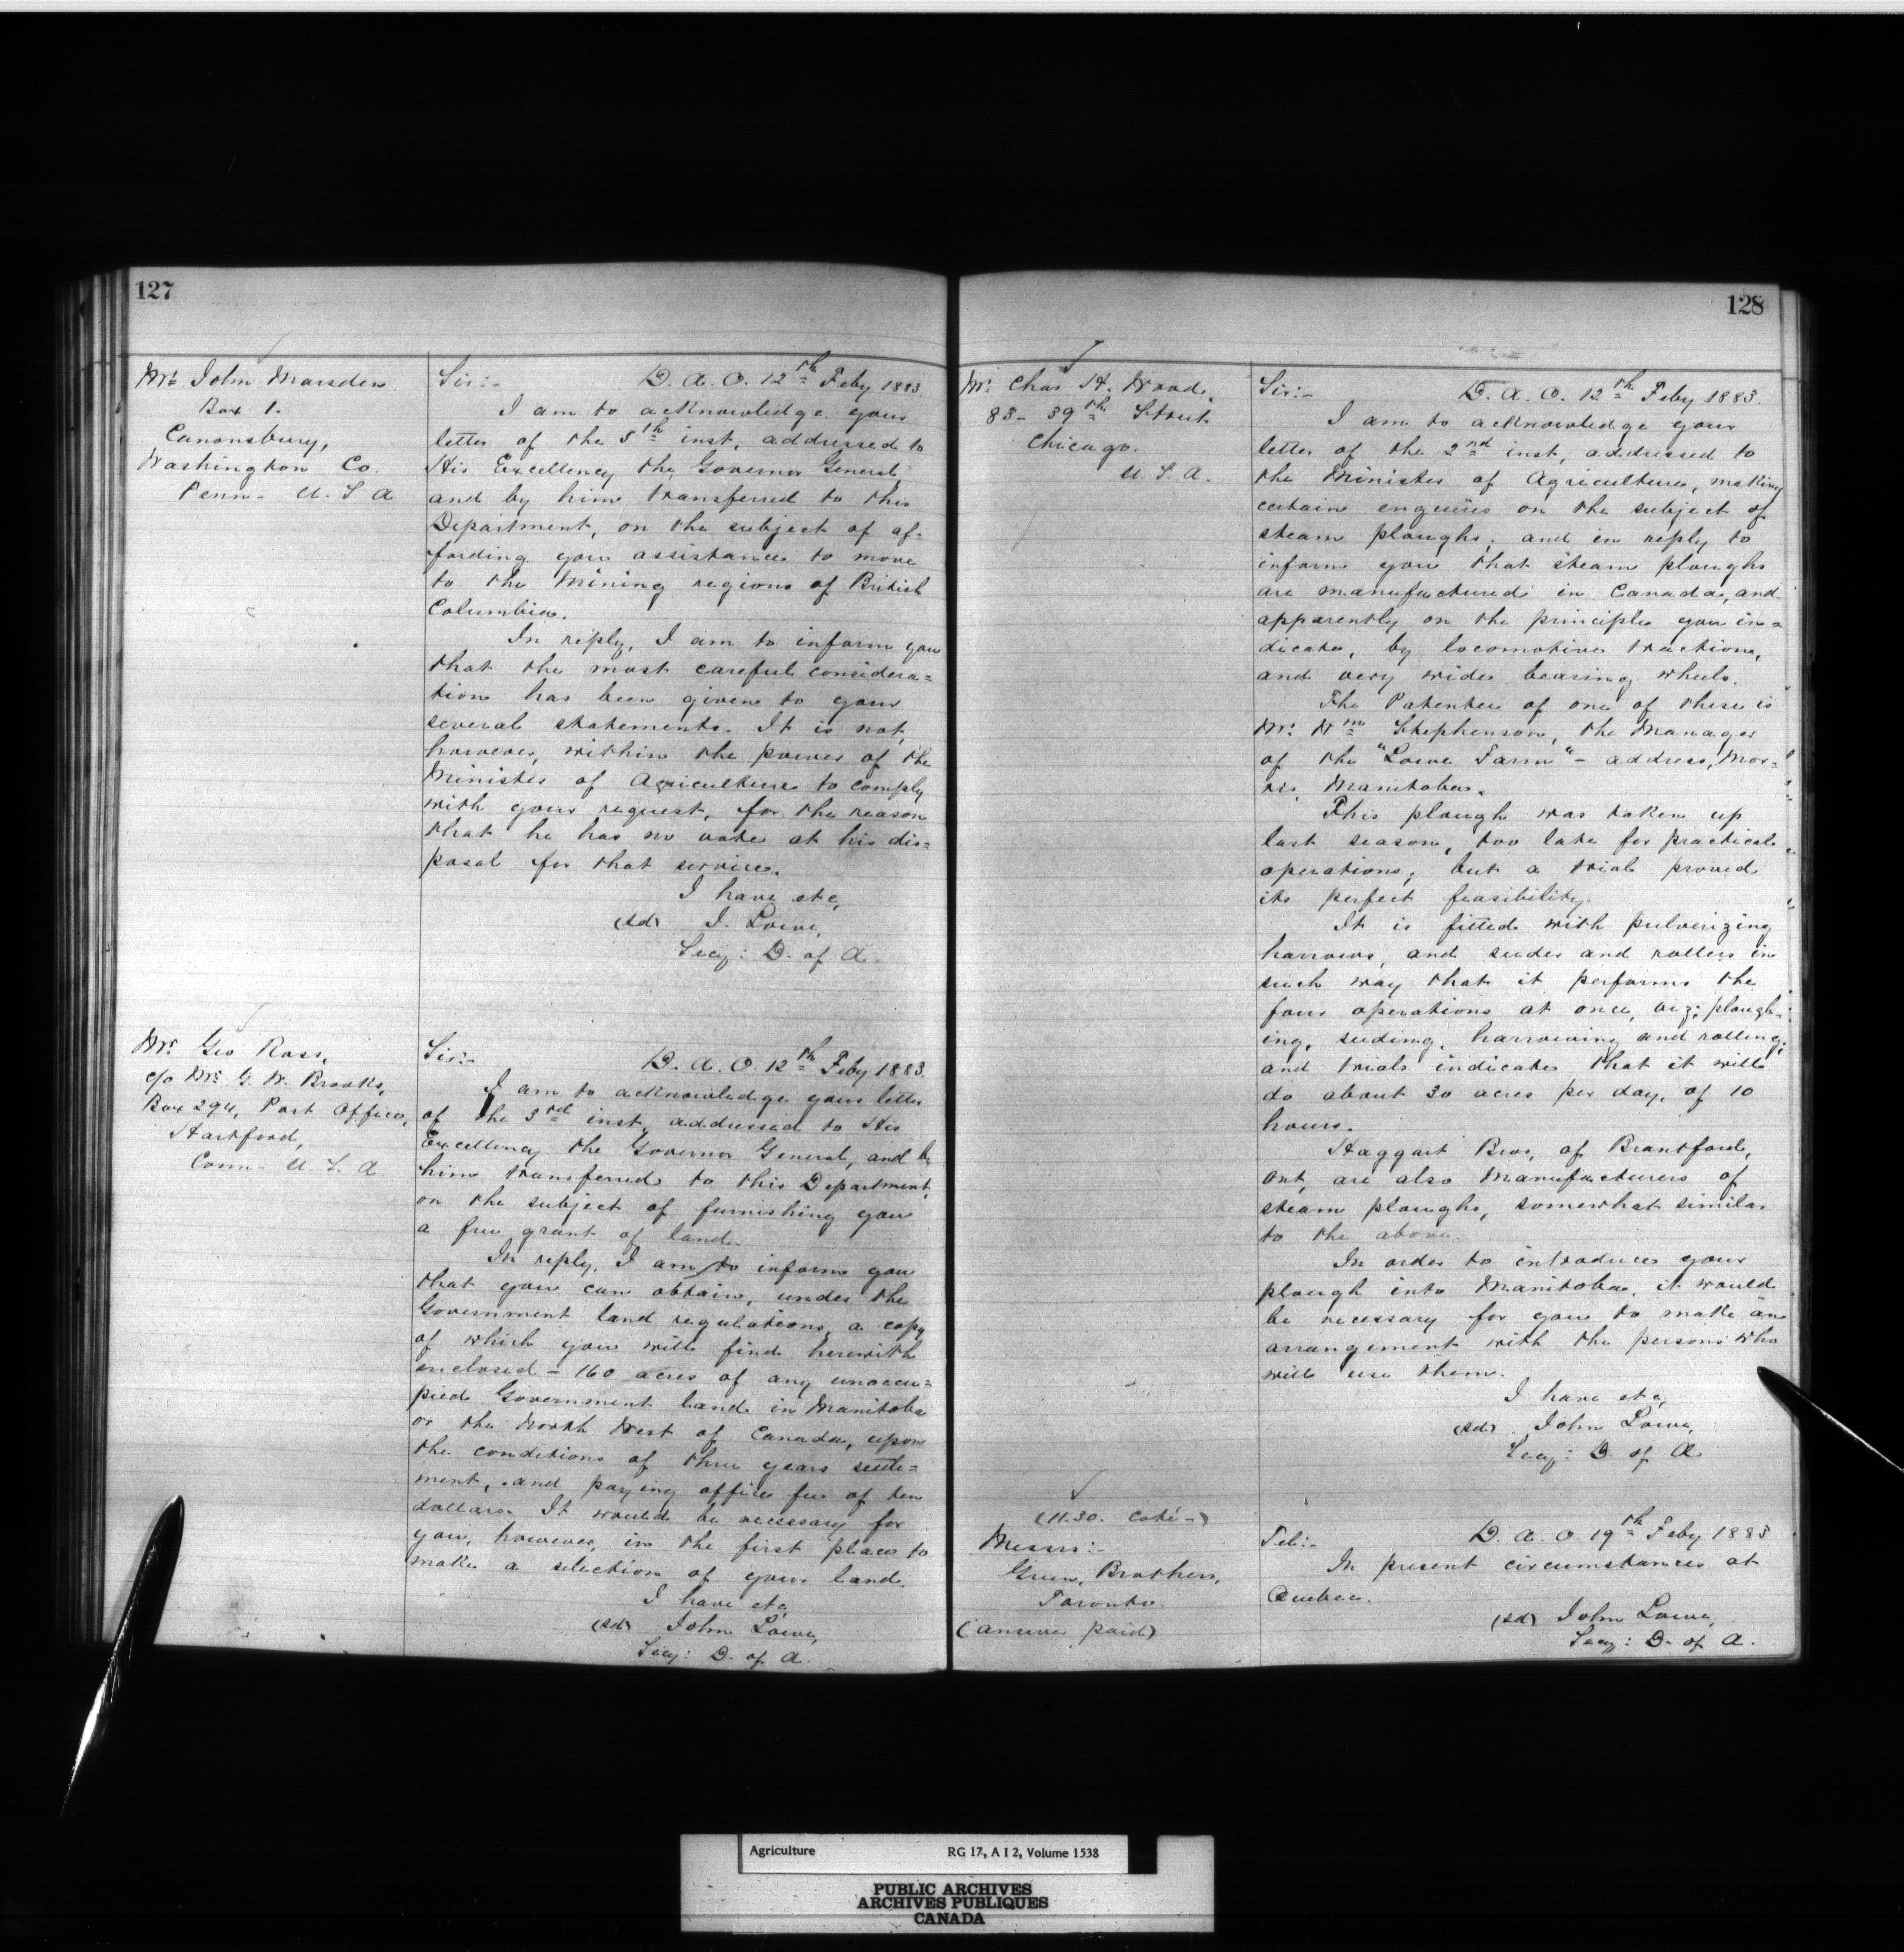 127
Mr. John Marsden
Box 1.
Canonsbury,
Washington Co.
Penn- U. S. A
Sir:- D. A. O. 12th Feby 1883.
I am to acknowledge your
letter of the 5th inst, addressed to
His Excellency the Governor General,
and by him transferred to this
Department, on the subject of af-
fording you assistance to move
to the Mining regions of British
Columbia.
In reply, I am to inform you
that the most careful considera=
tion has been given to your
several statements. It is not,
however, within the power of the
Minister of Agriculture to comply
with your request, for the reason
that he has no vote at his dis=
posal for that service.
I have etc,
(sd) J. Lowe,
Secy: D. of A.
Mr. Geo Ross,
c/o Mr. G. W. Brooks,
Box 294, Post Office,
Hartford,
Conn- U. S. A
Sir:- D. A. O. 12th Feby 1883.
I am to acknowledge your letter
of the 3rd inst, addressed to His
Excellency the Governor General, and by
him transferred to this Department,
on the subject of furnishing you
a free grant of land.
In reply, I am to inform you
that you can obtain, under the
Government land regulations, a copy
of which you will find herewith
enclosed - 160 acres of any unoccu=
pied Government land in Manitoba
or the North West of Canada, upon
the conditions of three years settle=
ment, and paying office fee of ten
dollars. It would be necessary for
you, however, in the first place to
make a selection of your land.
I have etc,
(sd) John Lowe,
Secy: D. of A.
128
Mr. Chas H. Wood,
83- 39th Street
Chicago.
U. S. A.
Sir:- D. A. O. 12th Feby 1883.
I am to acknowledge your
letter of the 2nd inst, addressed to
the Minister of Agriculture, making
certain enquiries on the subject of
steam ploughs; and in reply to
inform you that steam ploughs
are manufactured in Canada, and
apparently on the principle you in=
dicate, by locomotive traction,
and very wide bearing wheels.
The Patentee of one of these is
Mr. Wm Stephenson, the Manager
of the "Lowe Farm" - address, Mor-
ris, Manitoba.
This plough was taken up
last season, too late for practical
operations; but a trial proved
its perfect feasibility.
It is fitted with pulverizing
harrows, and seeder and rollers in
such way that it performs the
four operations at once, viz; plough-
ing, seeding, harrowing and rolling;
and trials indicate that it will
do about 30 acres per day, of 10
hours.
Haggart Bros, of Brantford,
Ont, are also Manufacturers of
steam ploughs, somewhat similar
to the above.
In order to introduce your
plough into Manitoba, it would
be necessary for you to make an
arrangement with the persons who
will use them.
I have etc,
(sd) John Lowe,
Secy: D. of A
(11.30. Coté-)
Messrs:-
Green, Brothers,
Toronto.
(answer paid)
Tel:- D. A. O 19th Feby 1883
In present circumstances at
Quebec.
(sd) John Lowe,
Secy: D. of A.
Agriculture RG 17, A I 2, Volume 1538
PUBLIC ARCHIVES
ARCHIVES PUBLIQUES
CANADA